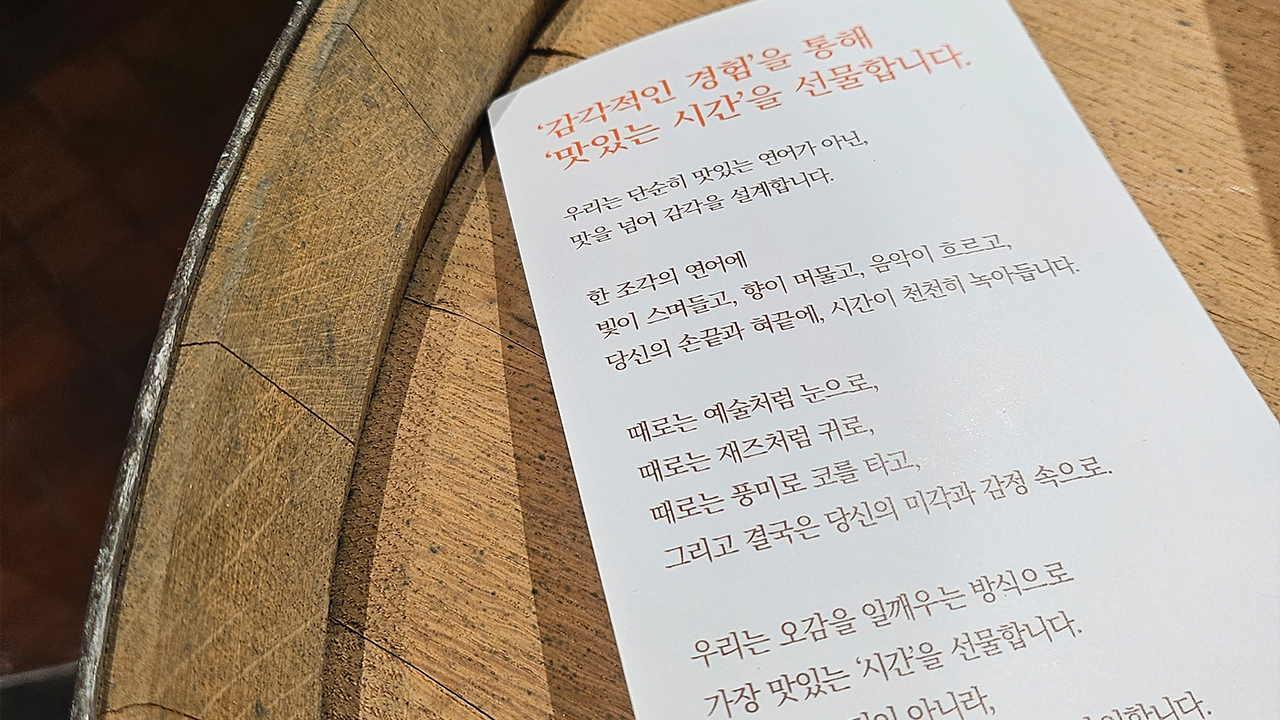 ‘감각적인 경험’을 통해
‘맛있는 시간’을 선물합니다.
우리는 단순히 맛있는 연어가 아닌,
맛을 넘어 감각을 설계합니다.
한 조각의 연어에
빛이 스며들고, 향이 머물고, 음악이 흐르고,
당신의 손끝과 혀끝에, 시간이 천천히 녹아듭니다.
때로는 예술처럼 눈으로,
때로는 재즈처럼 귀로,
때로는 풍미로 코를 타고,
그리고 결국은 당신의 미각과 감정 속으로.
우리는 오감을 일깨우는 방식으로
가장 맛있는 ‘시간’을 선물합니다.
아니라,